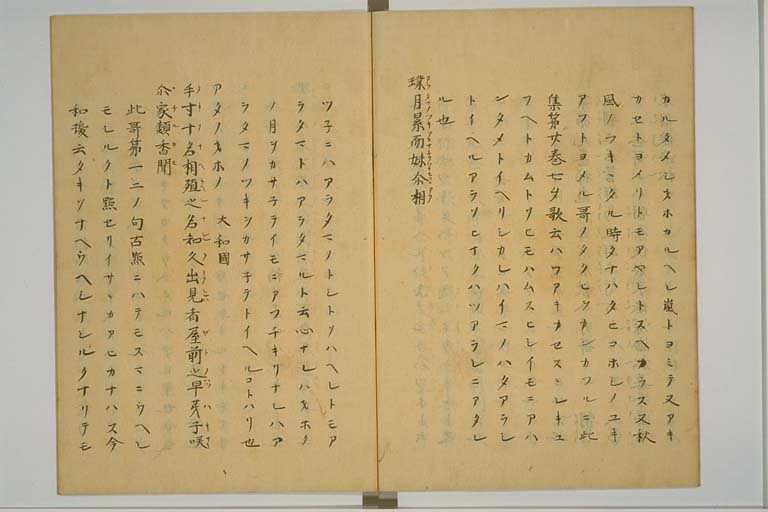 カルタメシオホカルヘシ嵐トヨミテ又アキ
カセトヨメリトモアヤシトスヘカラス又秋
風ノフキタル時タナハタヒコホシノユキ
アフトヨメル哥ノタクヒ
集第廿巻七夕歌云ハツアキカセスヽシキユ
フヘトカムトソヒモハムスヒシイモニアハ
ンタメトイヘリシカレハイマノハタアラシ
トイヘルアラシヒナクハツアラシニアタレ
ル也
璞月累而妹尒相
ツ子ニハアラタマノトシトソハヘレトモア
ラタマトハアラタマルト云心ナレハオホク
ノ月ヲカサ子テイモニアフチキリナレハア
ラタマノツキシカサ子テトイヘルコトハリ也
アタノオホノ 大和國
手寸十名相殖之名知久出見者屋前之早芽子咲
尒家類香聞
此哥第一二ノ句古點ニハテモスマニウヘシ
モシルクト點セリイサヽカアヒカナハス今
和換云タキソナヘウヘシナシルクナリテモ